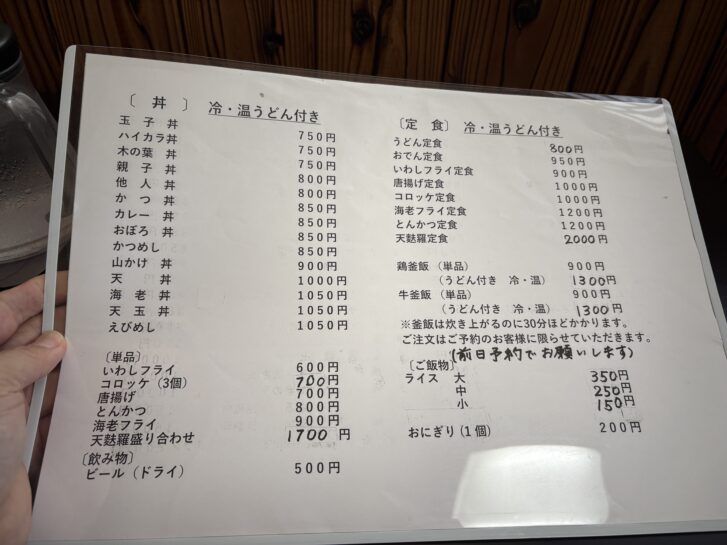 〔 丼 〕 冷・温うどん付き
玉子丼 750円
ハイカラ丼 750円
木の葉丼 750円
親子丼 800円
他人丼 800円
かつ丼 850円
カレー丼 850円
おぼろ丼 850円
かつめし 850円
山かけ丼 900円
天丼 1000円
海老丼 1050円
天玉丼 1050円
えびめし 1050円
〔単品〕
いわしフライ 600円
コロッケ（3個） 700円
唐揚げ 700円
とんかつ 800円
海老フライ 900円
天麩羅盛り合わせ 1700円
〔飲み物〕
ビール（ドライ） 500円
〔定 食〕 冷・温うどん付き
うどん定食 800円
おでん定食 950円
いわしフライ定食 900円
唐揚げ定食 1000円
コロッケ定食 1000円
海老フライ定食 1200円
とんかつ定食 1200円
天麩羅定食 2000円
鶏釜飯（単品） 900円
（うどん付き 冷・温） 1300円
牛釜飯（単品） 900円
（うどん付き 冷・温） 1300円
※釜飯は炊き上がるのに30分ほどかかります。
ご注文はご予約のお客様に限らせていただきます。
(前日予約でお願いします)
〔ご飯物〕
ライス 大 350円
中 250円
小 150円
おにぎり（1個） 200円